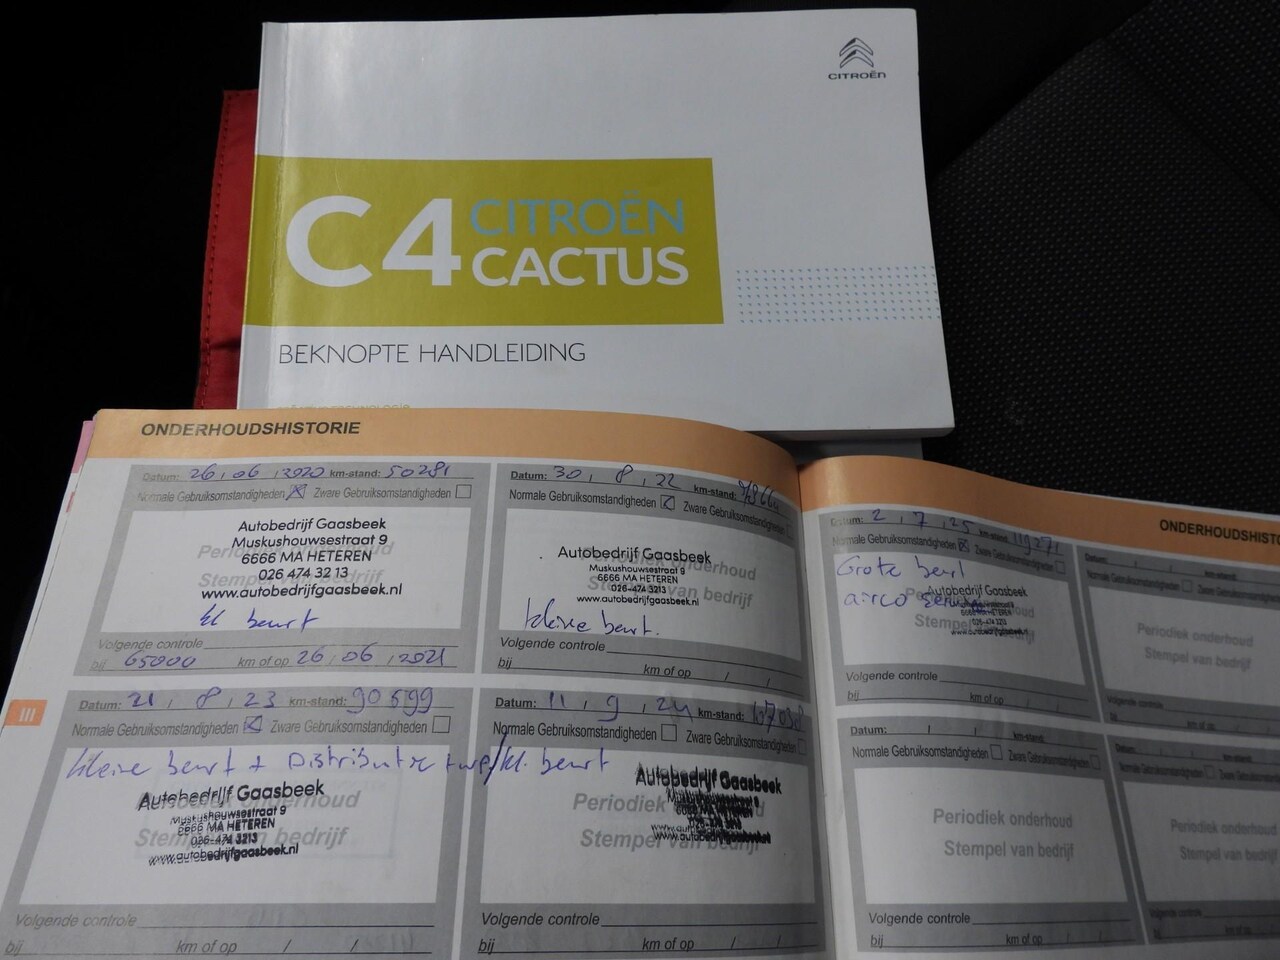 CITROËN
C4 CITROËN
CACTUS
BEKNOPTE HANDLEIDING
ONDERHOUDSHISTORIE
Datum: 26, 06, 2020 km-stand: 50281
Normale Gebruiksomstandigheden Zware Gebruiksomstandigheden
Autobedrijf Gaasbeek
Muskushouwsestraat 9
6666 MA HETEREN
026 474 32 13
www.autobedrijfgaasbeek.nl
Periodiek onderhoud
Stempel van bedrijf
kl beurt
Volgende controle
bij 65000 km of op 26, 06, 2021
Datum: 30, 8, 22 km-stand:
Normale Gebruiksomstandigheden Zware Gebruiksomstandigheden
Autobedrijf Gaasbeek
Muskushouwsestraat 9
6666 MA HETEREN
026-474 3213
www.autobedrijfgaasbeek.nl
Periodiek onderhoud
Stempel van bedrijf
kleine beurt.
Volgende controle
bij km of op / /
III
Datum: 21, 8, 23 km-stand: 90699
Normale Gebruiksomstandigheden Zware Gebruiksomstandigheden
kleine beurt + Distributie
Autobedrijf Gaasbeek
Muskushouwsestraat 9
6666 MA HETEREN
026-474 3213
www.autobedrijfgaasbeek.nl
Periodiek onderhoud
Stempel van bedrijf
Volgende controle
bij km of op / /
Datum: 11, 9, 24 km-stand:
Normale Gebruiksomstandigheden Zware Gebruiksomstandigheden
kl. beurt
Autobedrijf Gaasbeek
Periodiek onderhoud
Stempel van bedrijf
Volgende controle
bij km of op / /
ONDERHOUDSHISTO
Datum: 2, 7, 25 km-stand: 119271
Normale Gebruiksomstandigheden Zware Gebruiksomstandigheden
Grote beurt
airco service
Autobedrijf Gaasbeek
6666 MA HETEREN
Stempel
Volgende controle
bij km of op / /
Datum: / / km-stand:
Normale Gebruiksomstandigheden Zware Gebruiksomstandigheden
Periodiek onderhoud
Stempel van bedrijf
Volgende controle
bij km of op
Datum: / / km-stand:
Normale Gebruiksomstandigheden Zware Gebruiksomstandigheden
Periodiek onderhoud
Stempel van bedrijf
Volgende controle
bij km of op / /
Datum: km-stand:
Normale Gebruiksomstandigheden Zware
Periodiek onderhoud
Stempel van bedrijf
Volgende controle
bij km of op